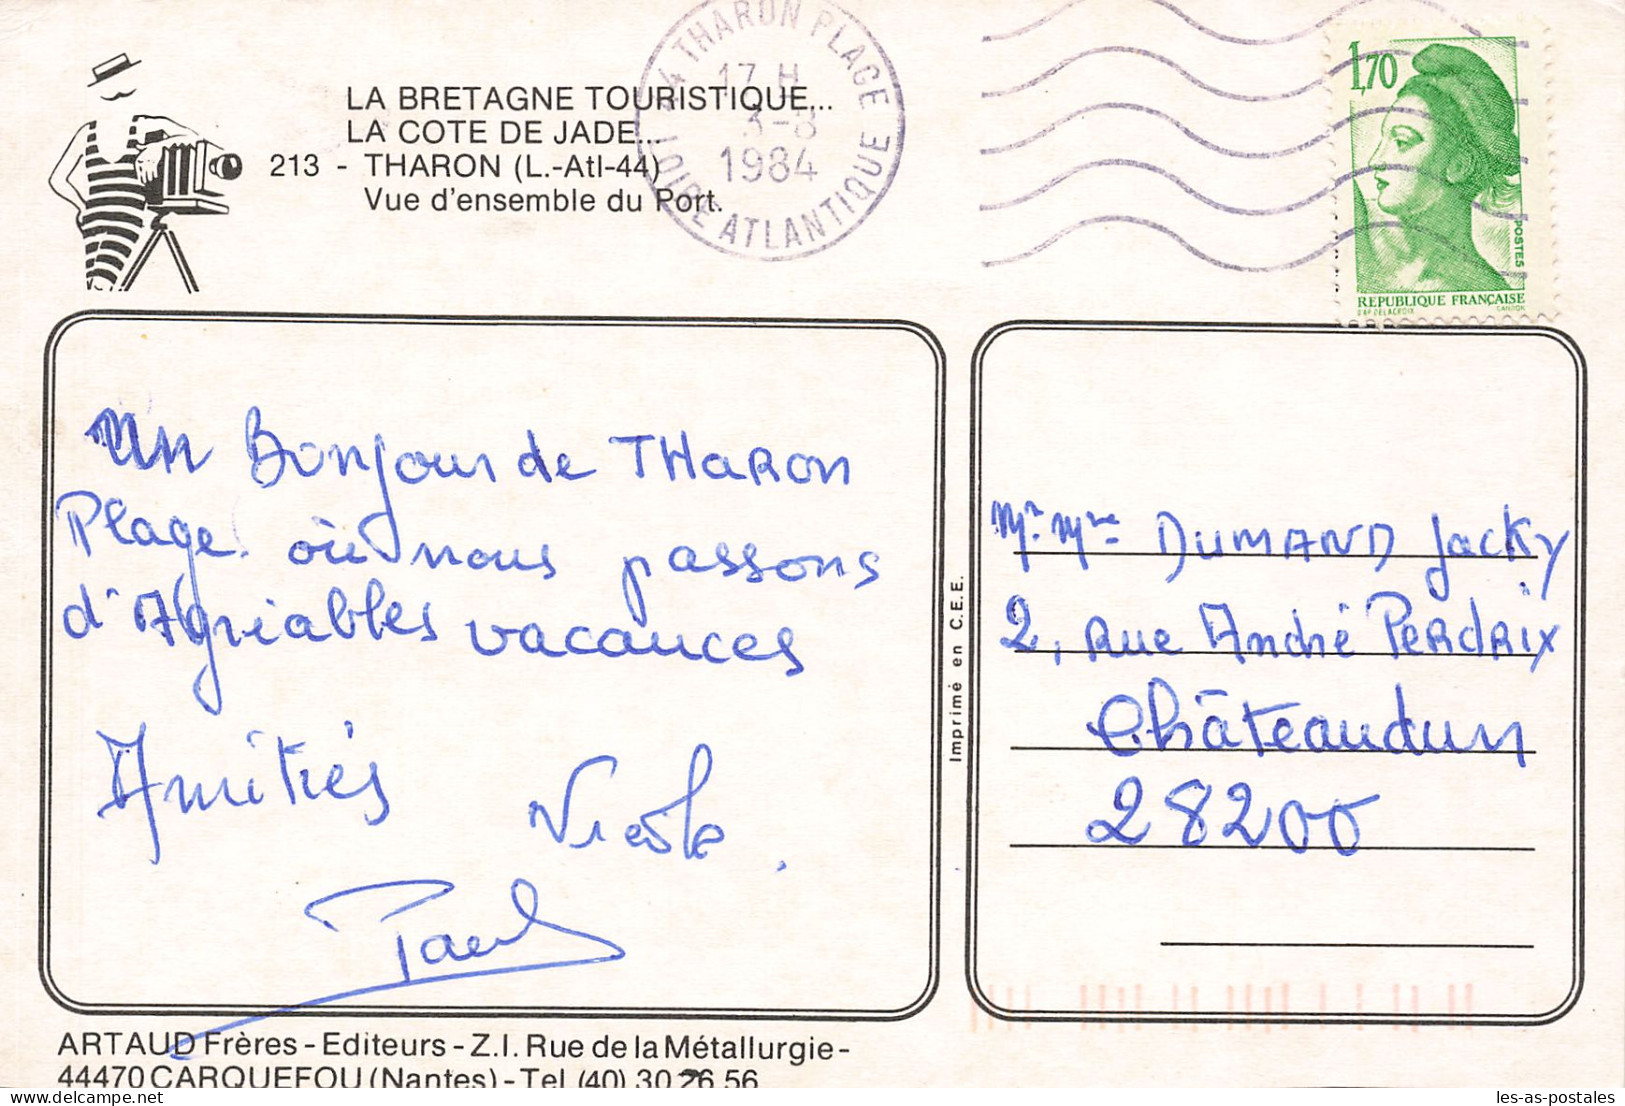 LA BRETAGNE TOURISTIQUE...
LA COTE DE JADE...
213 - THARON (L.-Atl-44)
Vue d'ensemble du Port.
44 THARON PLAGE
17 H
3-8
1984
LOIRE ATLANTIQUE
1,70
POSTES
REPUBLIQUE FRANÇAISE
D'AP DELACROIX GANDON
Un Bonjour de THARON
Plage où nous passons
d'Agréables vacances
Amitiés Nicole
Paul
Imprimé en C.E.E.
Mr. Mme DUMAND Jacky
2, Rue André PERDRIX
Châteaudun
28200
ARTAUD Frères - Editeurs - Z.I. Rue de la Métallurgie -
44470 CARQUEFOU (Nantes) - Tel (40) 30 26 56
les-as-postales